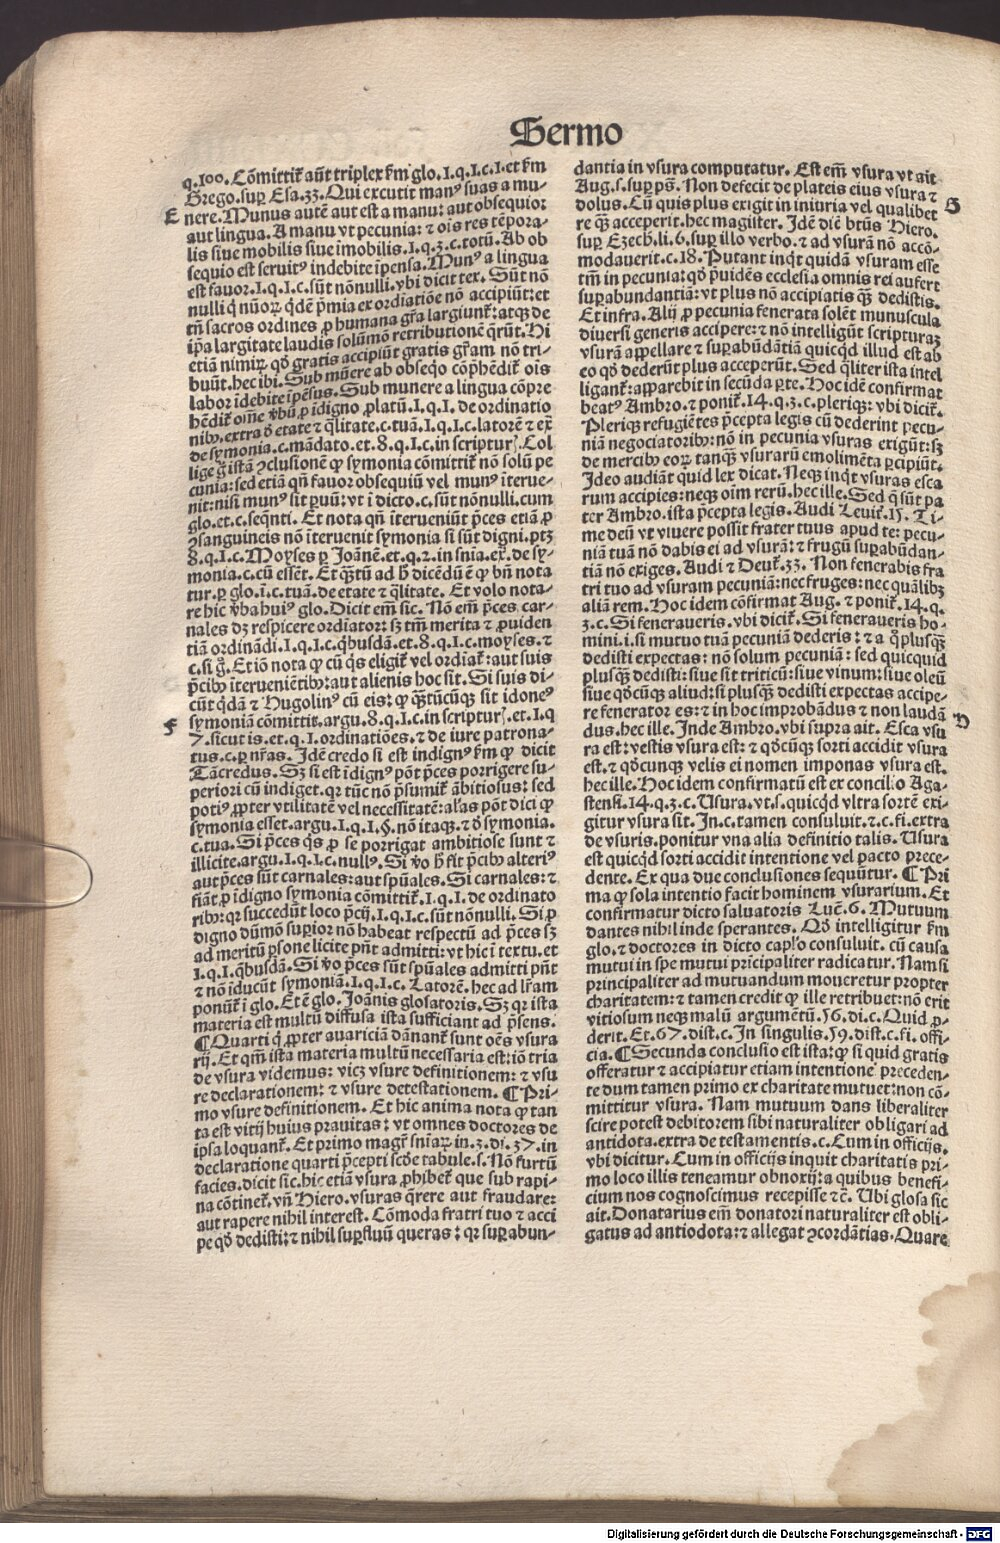 Sermo
q.100. Cōmittit᷑ aūt triplex ẜm glo.1.q.1.c.1.et ẜm
Grego.suꝑ Esa.33. Qui excutit manꝰ suas a mu-
E nere. Munus autē aut est a manu: aut obsequio:
aut lingua. A manu vt pecunia: ⁊ oīs res tēpora-
lis siue mobilis siue īmobilis.1.q.3.c.totū. Ab ob
sequio est seruitꝰ indebite īpensa. Munꝰ a lingua
est fauor.1.q.1.c.sūt nōnulli.vbi dicit tex. Sūt nō
nulli q̄ nūoꝝ q̄dē p̄mia ex ordiatiōe nō accipiūt: et
tn̄ sacros ordines ꝓ humana gr̄a largiunt᷑: atqꝫ de
ip̄a largitate laudis solūmō retributionē q̄rūt. Hi
etiā nimiꝝ qd̄ gratis accipiūt gratis gr̄am nō tri-
buūt.hec ibi. Sub mūere ab obseqo cōp̄hēdit᷑ oīs
labor īdebite īpēsus. Sub munere a lingua cōpre
hēdit᷑ oīne v̄bū ꝓ īdigno ꝓlatū.1.q.1. de ordinatio
nibꝰ.extra d̄ etate ⁊ q̄litate.c.tuā.1.q.1.c.latorē ⁊ ex
de symonia.c.mādato.et.8.q.1.c.in scripturꝭ. Col
lige g̊ istā ꝯclusionē ꝙ symonia cōmittit᷑ nō solū pe
cunia: sed etiā qn̄ fauor obsequiū vel munꝰ īterue-
nit: nisi munꝰ sit ꝑuū: vt ī dicto.c.sūt nōnulli.cum
glo.et.c.seqn̄ti. Et nota qn̄ īterueniūt p̄ces etiā ꝓ
ꝯsanguineis nō īteruenit symonia si sūt digni.ptꝫ
8.q.1.c. Moyses ꝑ Joānē.et.q.2.in fnīa.ex̄.de sy-
monia.c.cū essēt. Et q̄tū ad h̄ dicēdū ē ꝙ bn̄ nota
tur.ꝑ glo.ī.c.tuā.de etate ⁊ q̄litate. Et volo nota-
re hic v̄ba huiꝰ glo. Dicit em̄ sic. Nō em̄ p̄ces car-
nales dꝫ respicere ordiator: sꝫ tm̄ merita ⁊ ꝓuiden
tiā ordinādi.1.q.1.c.q̄busdā.et.8.q.1.c.moyses.⁊
c.si g̊. Et iō nota ꝙ cū q̄s eligit᷑ vel ordiat᷑: aut suis
p̄cibꝰ īterueniētibꝰ: aut alienis hoc sit. Si suis di-
cūt q̄dā ⁊ Hugolinꝰ cū eis: ꝙ q̄tūcūqꝫ sit idoneꝰ
F symoniā cōmittit.argu.8.q.1.c.in scripturꝭ.et.1.q
7.sicut is.et.q.1.ordinatiōes.⁊ de iure patrona-
tus.c.ꝑ nr̄as. Idē credo si est indignꝰ ẜm ꝙ dicit
Tācredus. Sꝫ si est īdignꝰ pōt p̄ces porrigere su-
periori cū indiget.qr tūc nō p̄sumit᷑ ābitiosus: sed
potiꝰ ꝓpter vtilitatē vel necessitatē: al̄as pōt dici ꝙ
symonia esset.argu.1.q.1.§.nō itaqꝫ.⁊ d̄ symonia.
c.tua. Si p̄ces q̄s ꝓ se porrigat ambitiose sunt ⁊
illicite.argu.1.q.1.c.nullꝰ. Si v̄o h̄ fit p̄cibꝰ alteriꝰ
aut p̄ces sūt carnales: aut sp̄uales. Si carnales: ⁊
fiāt ꝓ īdigno symonia cōmittit᷑.1.q.1.de ordinato
ribꝰ: qr succedūt loco p̄cij.1.q.1.c.sūt nōnulli. Si ꝓ
digno dūmō suꝑior nō habeat respectū ad p̄ces sꝫ
ad meritū ꝑsone licite pn̄t admitti: vt hic ī textu.et
1.q.1.q̄busdā. Si v̄o p̄ces sūt sp̄uales admitti pn̄t
⁊ nō iducūt symoniā.1.q.1.c. Latorē.hec ad lr̄am
ponūt᷑ ī glo. Et ē glo. Joānis glosatoris. Sꝫ qr ista
materia est multū diffusa ista sufficiant ad p̄sens.
¶Quarti q̄ ꝓpter auariciā dānant᷑ sunt oēs vsura
rij. Et qm̄ ista materia multū necessaria est: iō tria
de vsura videmus: vicꝫ vsure definitionem: ⁊ vsu
re declarationem: ⁊ vsure detestationem. ¶Pri-
mo vsure definitionem. Et hic anima nota ꝙ tan
ta est vitij huius prauitas: vt omnes doctores de
ipsa loquant᷑. Et primo magr̄ sniaꝝ in.3.di.37.in
declaratione quarti p̄cepti scd̄e tabule.s. Nō furtū
facies.dicit sic.hic etiā vsura ꝓhibet᷑ que sub rapi-
na cōtinet᷑.vn̄ Hiero.vsuras q̄rere aut fraudare:
aut rapere nihil interest. Cōmoda fratri tuo ⁊ acci
pe qd̄ dedisti: ⁊ nihil suꝑfluū queras: qr suꝑabun-
dantia in vsura computatur. Est em̄ vsura vt ait
Aug.s.suꝑ ps̄. Non defecit de plateis eius vsura ⁊
dolus. Cū quis plus exigit in iniuria vel qualibet G
re q̄ꝫ acceperit.hec magister. Idē diē btūs Hiero.
suꝑ Ezech.li.6.suꝑ illo verbo.⁊ ad vsurā nō accō-
modauerit.c.18. Putant inqͥt quidā vsuram esse
tm̄ in pecunia: qd̄ p̄uidēs ecclesia omnis rei aufert
suꝑabundantiā: vt plus nō accipiatis q̄ꝫ dedistis.
Et infra. Alij ꝓ pecunia fenerata solēt munuscula
diuersi generis accipere: ⁊ nō intelligūt scripturaꝫ
vsurā appellare ⁊ suꝑabūdātiā quicqd illud est ab
eo qd̄ dederūt plus acceperūt. Sed q̄liter ista intel
ligant᷑: apparebit in secūda ꝑte. Hoc idē confirmat
beatꝰ Ambro.⁊ ponit᷑.14.q.3.c.pleriqꝫ: vbi dicit᷑.
Pleriqꝫ refugiētes p̄cepta legis cū dederint pecu-
niā negociatoribꝰ: nō in pecunia vsuras exigūt: sꝫ
de mercibꝰ eoꝝ tanqꝫ vsurarū emolimēta ꝑcipiūt.
Ideo audiāt quid lex dicat. Neqꝫ inqͥt vsuras esca
rum accipies: neqꝫ oīm rerū.hec ille. Sed q̄ sūt pa
ter Ambro.ista p̄cepta legis. Audi Leuit᷑.15. Ti-
me deū vt viuere possit frater tuus apud te: pecu-
niā tuā nō dabis ei ad vsurā: ⁊ frugū suꝑabūdan-
tiā nō exiges. Audi ⁊ Deut᷑.33. Non fenerabis fra
tri tuo ad vsuram pecuniā: nec fruges: nec quālibꝫ
aliā rem. Hoc idem cōfirmat Aug.⁊ ponit᷑.14.q.
3.c. Si feneraueris.vbi dicit᷑. Si feneraueris ho-
mini.i.si mutuo tuā pecuniā dederis: ⁊ a q̊ plusqꝫ
dedisti expectas: nō solum pecuniā: sed quicquid
plusqꝫ dedisti: siue sit triticū: siue vinum: siue oleū
siue qd̄cūqꝫ aliud: si plusqꝫ dedisti expectas accipe-
re fenerator es: ⁊ in hoc improbādus ⁊ non laudā H
dus.hec ille. Inde Ambro.vbi supra ait. Esca vsu
ra est: vestis vsura est: ⁊ qd̄cūqꝫ sorti accidit vsura
est.⁊ qd̄cunqꝫ velis ei nomen imponas vsura est.
hec ille. Hoc idem confirmatū est ex concilio Aga-
stensi.14.q.3.c. Vsura.vt.s.quicqd vltra sortē exi-
gitur vsura sit. In.c.tamen consuluit.⁊.c.fi.extra
de vsuris.ponitur vna alia definitio talis. Vsura
est quicqd sorti accidit intentione vel pacto prece-
dente. Ex qua due conclusiones sequūtur. ¶Pri
ma ꝙ sola intentio facit hominem vsurarium. Et
confirmatur dicto saluatoris Luc̄.6. Mutuum
dantes nihil inde sperantes. Qd̄ intelligitur ẜm
glo.⁊ doctores in dicto cap̄lo consuluit.cū causa
mutui in spe mutui prīcipaliter radicatur. Nam si
principaliter ad mutuandum moueretur propter
charitatem: ⁊ tamen credit ꝙ ille retribuet: nō erit
vitiosum neqꝫ malū argumētū.56.di.c. Quid ꝓ-
derit. Et.67.dist.c. In singulis.59.dist.c.fi.offi-
cia. ¶Secunda conclusio est ista: ꝙ si quid gratis
offeratur ⁊ accipiatur etiam intentione preceden-
te dum tamen primo ex charitate mutuet: non cō-
mittitur vsura. Nam mutuum dans liberaliter
scire potest debitorem sibi naturaliter obligari ad
antidota.extra de testamentis.c. Cum in officijs.
vbi dicitur. Cum in officijs inquit charitatis pri-
mo loco illis teneamur obnoxij: a quibus benefi-
cium nos cognoscimus recepisse ⁊c̄. Vbi glosa sic
ait. Donatarius em̄ donatori naturaliter est obli-
gatus ad antiodota: ⁊ allegat ꝯcordātias. Quare
Digitalisierung gefördert durch die Deutsche Forschungsgemeinschaft - DFG